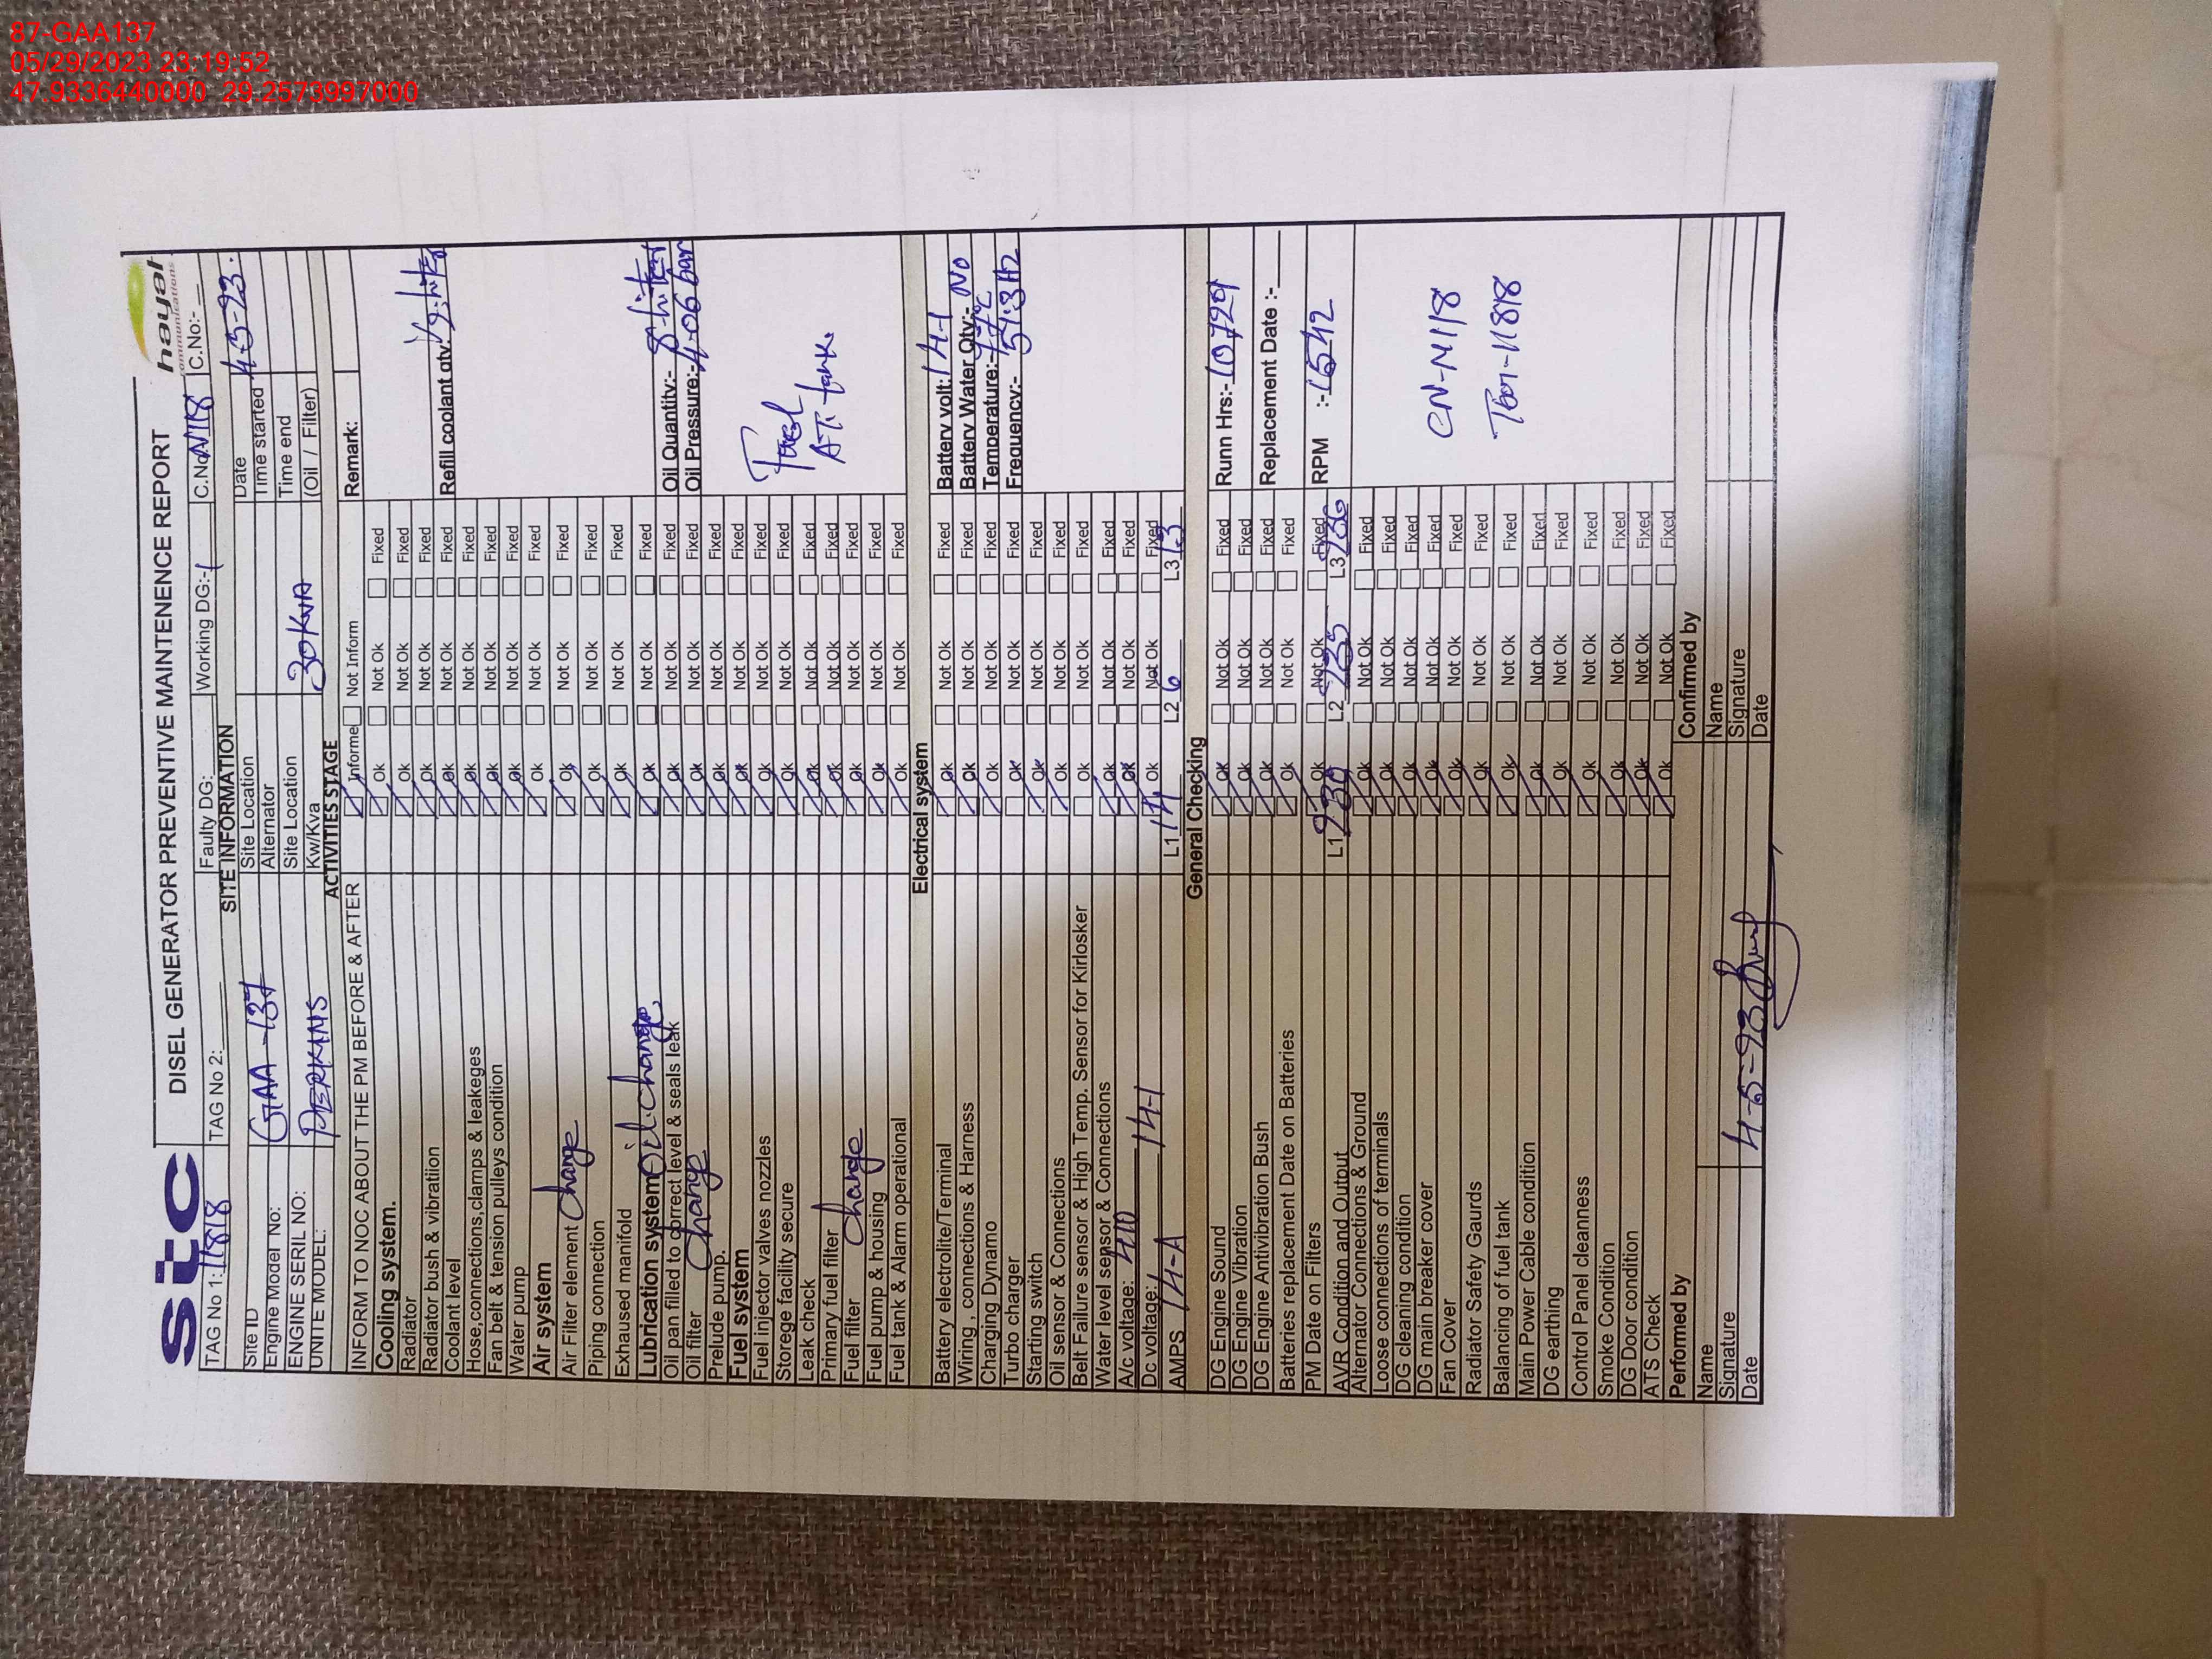 87-GAA137
05/29/2023 23:19:52
47.9336440000 29.2573997000
stc
hayat
communications
DISEL GENERATOR PREVENTIVE MAINTENENCE REPORT
TAG No 1: 11818 TAG No 2: Faulty DG: Working DG:-1 C.No N118 C.No:-
SITE INFORMATION
Site ID GAA-137 Site Location Date 4-5-23.
Engine Model No: Alternator Time started
ENGINE SERIL NO: Site Location Time end
UNITE MODEL: PERKINS Kw/Kva 30KVA (Oil / Filter)
ACTIVITIES STAGE
INFORM TO NOC ABOUT THE PM BEFORE & AFTER Informe Not Inform Remark:
Cooling system. Ok Not Ok Fixed
Radiator Ok Not Ok Fixed
Radiator bush & vibratiion Ok Not Ok Fixed
Coolant level Ok Not Ok Fixed Refill coolant qty: 1/2-liter
Hose,connections,clamps & leakeges Ok Not Ok Fixed
Fan belt & tension pulleys condition Ok Not Ok Fixed
Water pump Ok Not Ok Fixed
Air system Ok Not Ok Fixed
Air Filter element change Ok Not Ok Fixed
Piping connection Ok Not Ok Fixed
Exhaused manifold Ok Not Ok Fixed
Lubrication system oil.change. Ok Not Ok Fixed
Oil pan filled to correct level & seals leak Ok Not Ok Fixed Oil Quantity:- 8-liter
Oil filter change Ok Not Ok Fixed Oil Pressure:- 4.06 bar
Prelude pump. Ok Not Ok Fixed
Fuel system Ok Not Ok Fixed
Fuel injector valves nozzles Ok Not Ok Fixed
Storege facility secure Ok Not Ok Fixed Fuel
Leak check Ok Not Ok Fixed
Primary fuel filter Ok Not Ok Fixed
Fuel filter change Ok Not Ok Fixed
Fuel pump & housing Ok Not Ok Fixed
Fuel tank & Alarm operational Ok Not Ok Fixed
Electrical system
Battery electrolite/Terminal Ok Not Ok Fixed Battery volt: 14-1
Wiring , connections & Harness Ok Not Ok Fixed Battery Water Qty:- No
Charging Dynamo Ok Not Ok Fixed Temperature:- 77°C
Turbo charger Ok Not Ok Fixed Frequency:- 51.3 HZ
Starting switch Ok Not Ok Fixed
Oil sensor & Connections Ok Not Ok Fixed
Belt Failure sensor & High Temp. Sensor for Kirlosker Ok Not Ok Fixed
Water level sensor & Connections Ok Not Ok Fixed
A/c voltage: 410 Ok Not Ok Fixed
Dc voltage: 14-1 Ok Not Ok Fixed
AMPS 14-A L1 14 L2 6 L3 13
General Checking
DG Engine Sound Ok Not Ok Fixed Runn Hrs:- 10,729
DG Engine Vibration Ok Not Ok Fixed
DG Engine Antivibration Bush Ok Not Ok Fixed Replacement Date :-
Batteries replacement Date on Batteries Ok Not Ok Fixed
PM Date on Filters Ok Not Ok Fixed RPM :- 1542
AVR Condition and Output L1 230 L2 235 L3 236
Alternator Connections & Ground Ok Not Ok Fixed
Loose connections of terminals Ok Not Ok Fixed
DG cleaning condition Ok Not Ok Fixed
DG main breaker cover Ok Not Ok Fixed
Fan Cover Ok Not Ok Fixed CN-N118
Radiator Safety Gaurds Ok Not Ok Fixed
Balancing of fuel tank Ok Not Ok Fixed
Main Power Cable condition Ok Not Ok Fixed
DG earthing Ok Not Ok Fixed
Control Panel cleanness Ok Not Ok Fixed
Smoke Condition Ok Not Ok Fixed
DG Door condition Ok Not Ok Fixed
ATS Check Ok Not Ok Fixed
Performed by Confirmed by
Name Name
Signature Signature
Date 4-5-23 Date